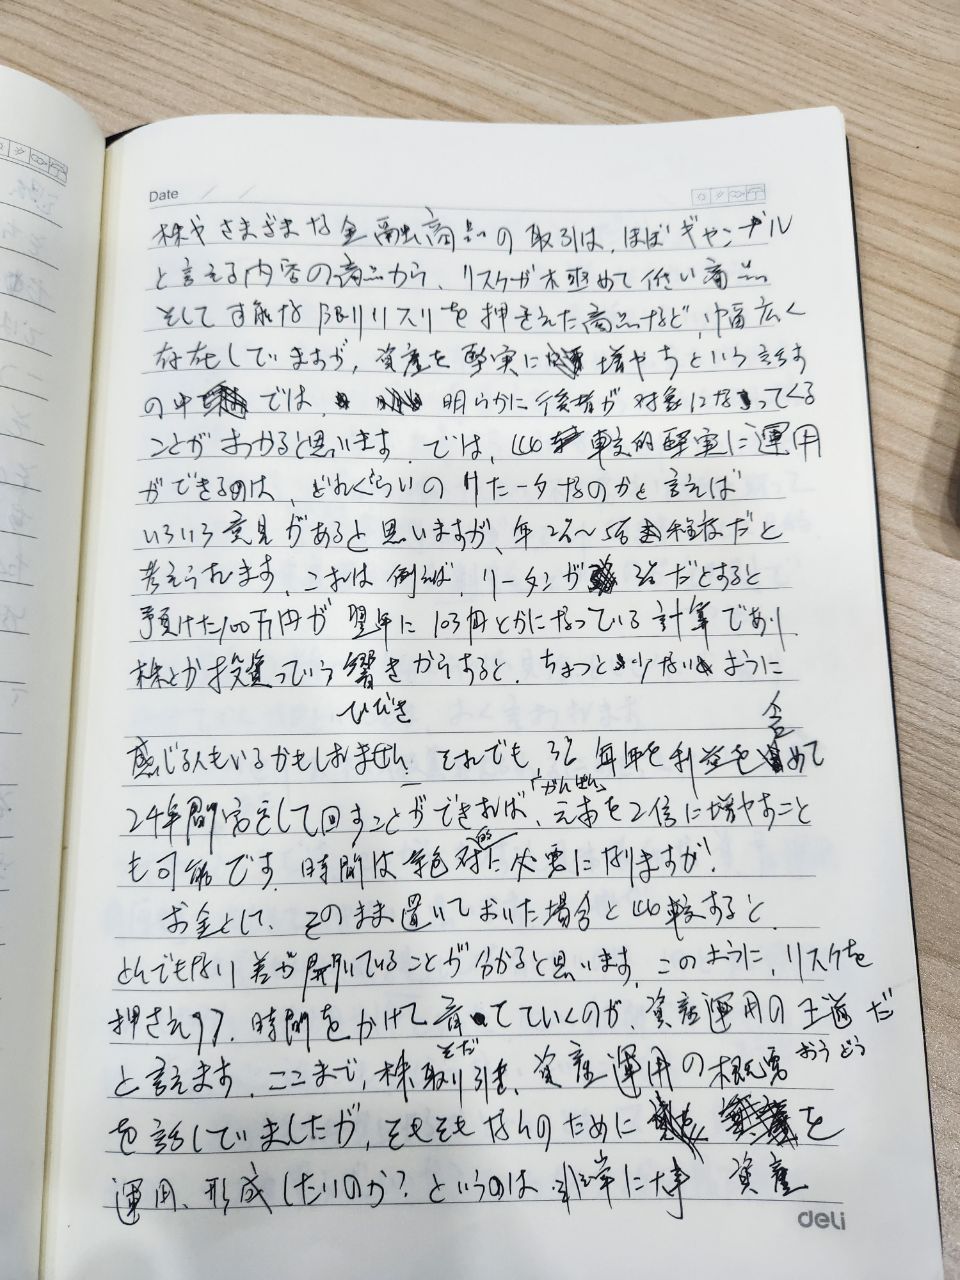 Date / /
株やさまざまな金融商品の取引は、ほぼギャンブル
と言える内容の商品から、リスクが極めて低い商品
そして可能な限りリスクを押さえた商品など、幅広く
存在していますが、資産を堅実に増やすという話す
の中では、明らかに後者が対象になってくる
ことがわかると思います。では、比較的堅実に運用
ができるのは、どれくらいのリターンなのかと言えば
いろいろ意見があると思いますが、年2%〜5%程度だと
考えられます。これは例えば、リータンが3%だとすると
預けた100万円が翌年に103円とかになっている計算であり
株とか投資っていう響きからすると、ちょっと少ないように
ひびき
含
感じる人もいるかもしれません。それでも、3% 毎年を利益を含めて
「がんぽん」
24年間 をして回すことができれば、元本を2倍に増やすこと
的
も可能です。時間は絶対に必要になりますが!
お金として、そのまま置いておいた場合と比較すると、
とんでもない差が開いていることが分かると思います。このように、リスクを
押さえつつ、時間をかけて育てていくのが、資産運用の王道だ
そだ
おうどう
と言えます。ここまで、株取り引き、資産運用の概要
を話していましたが、そもそもなんのために を
運用、形成したいのか?というのは 非常に大事 資産
deli